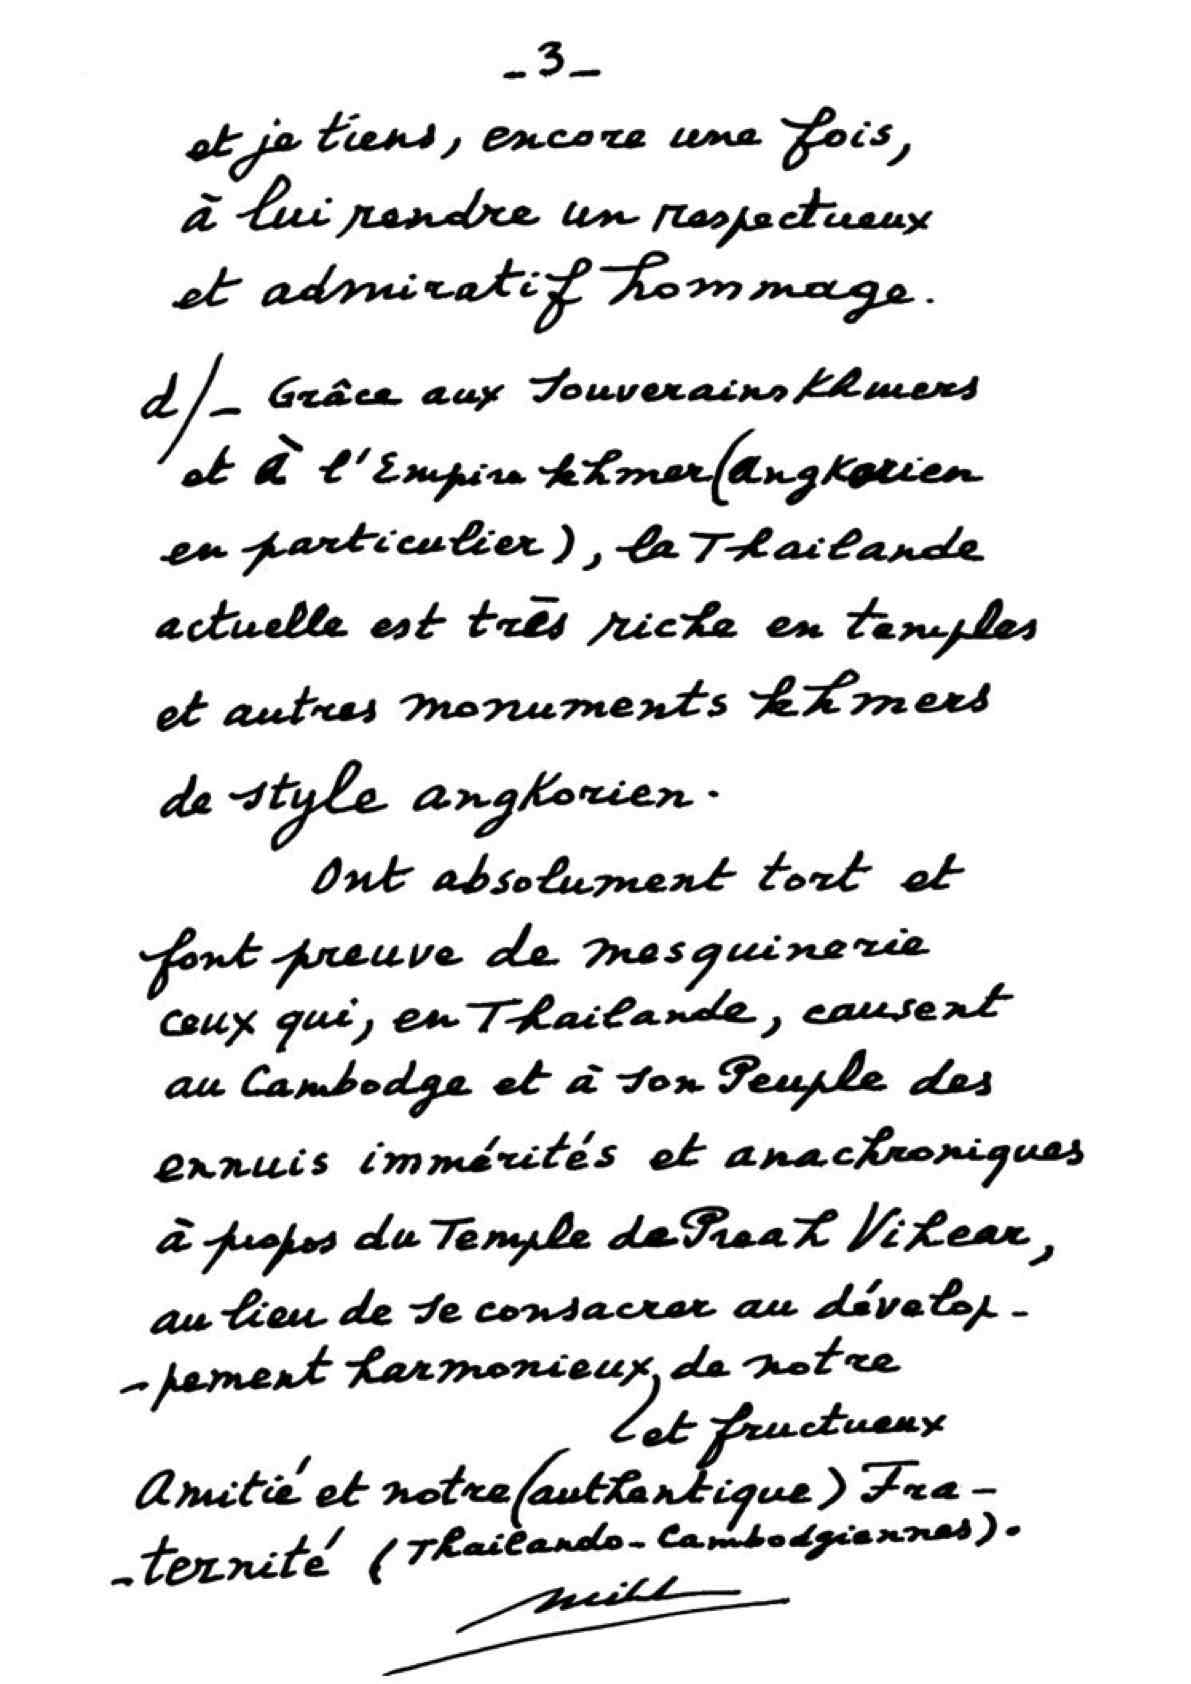 - 3 -
et je tiens, encore une fois,
à lui rendre un respectueux
et admiratif hommage.
d/- Grâce aux Souverains Khmers
et à l'Empire khmer (angkorien
en particulier), la Thailande
actuelle est très riche en temples
et autres monuments khmers
de style angkorien.
Ont absolument tort et
font preuve de mesquinerie
ceux qui, en Thailande, causent
au Cambodge et à son Peuple des
ennuis immérités et anachroniques
à propos du Temple de Preah Vihear,
au lieu de se consacrer au dévelop-
-pement harmonieux de notre
et fructueux
Amitié et notre (authentique) Fra-
-ternité (Thailando-Cambodgiennes).